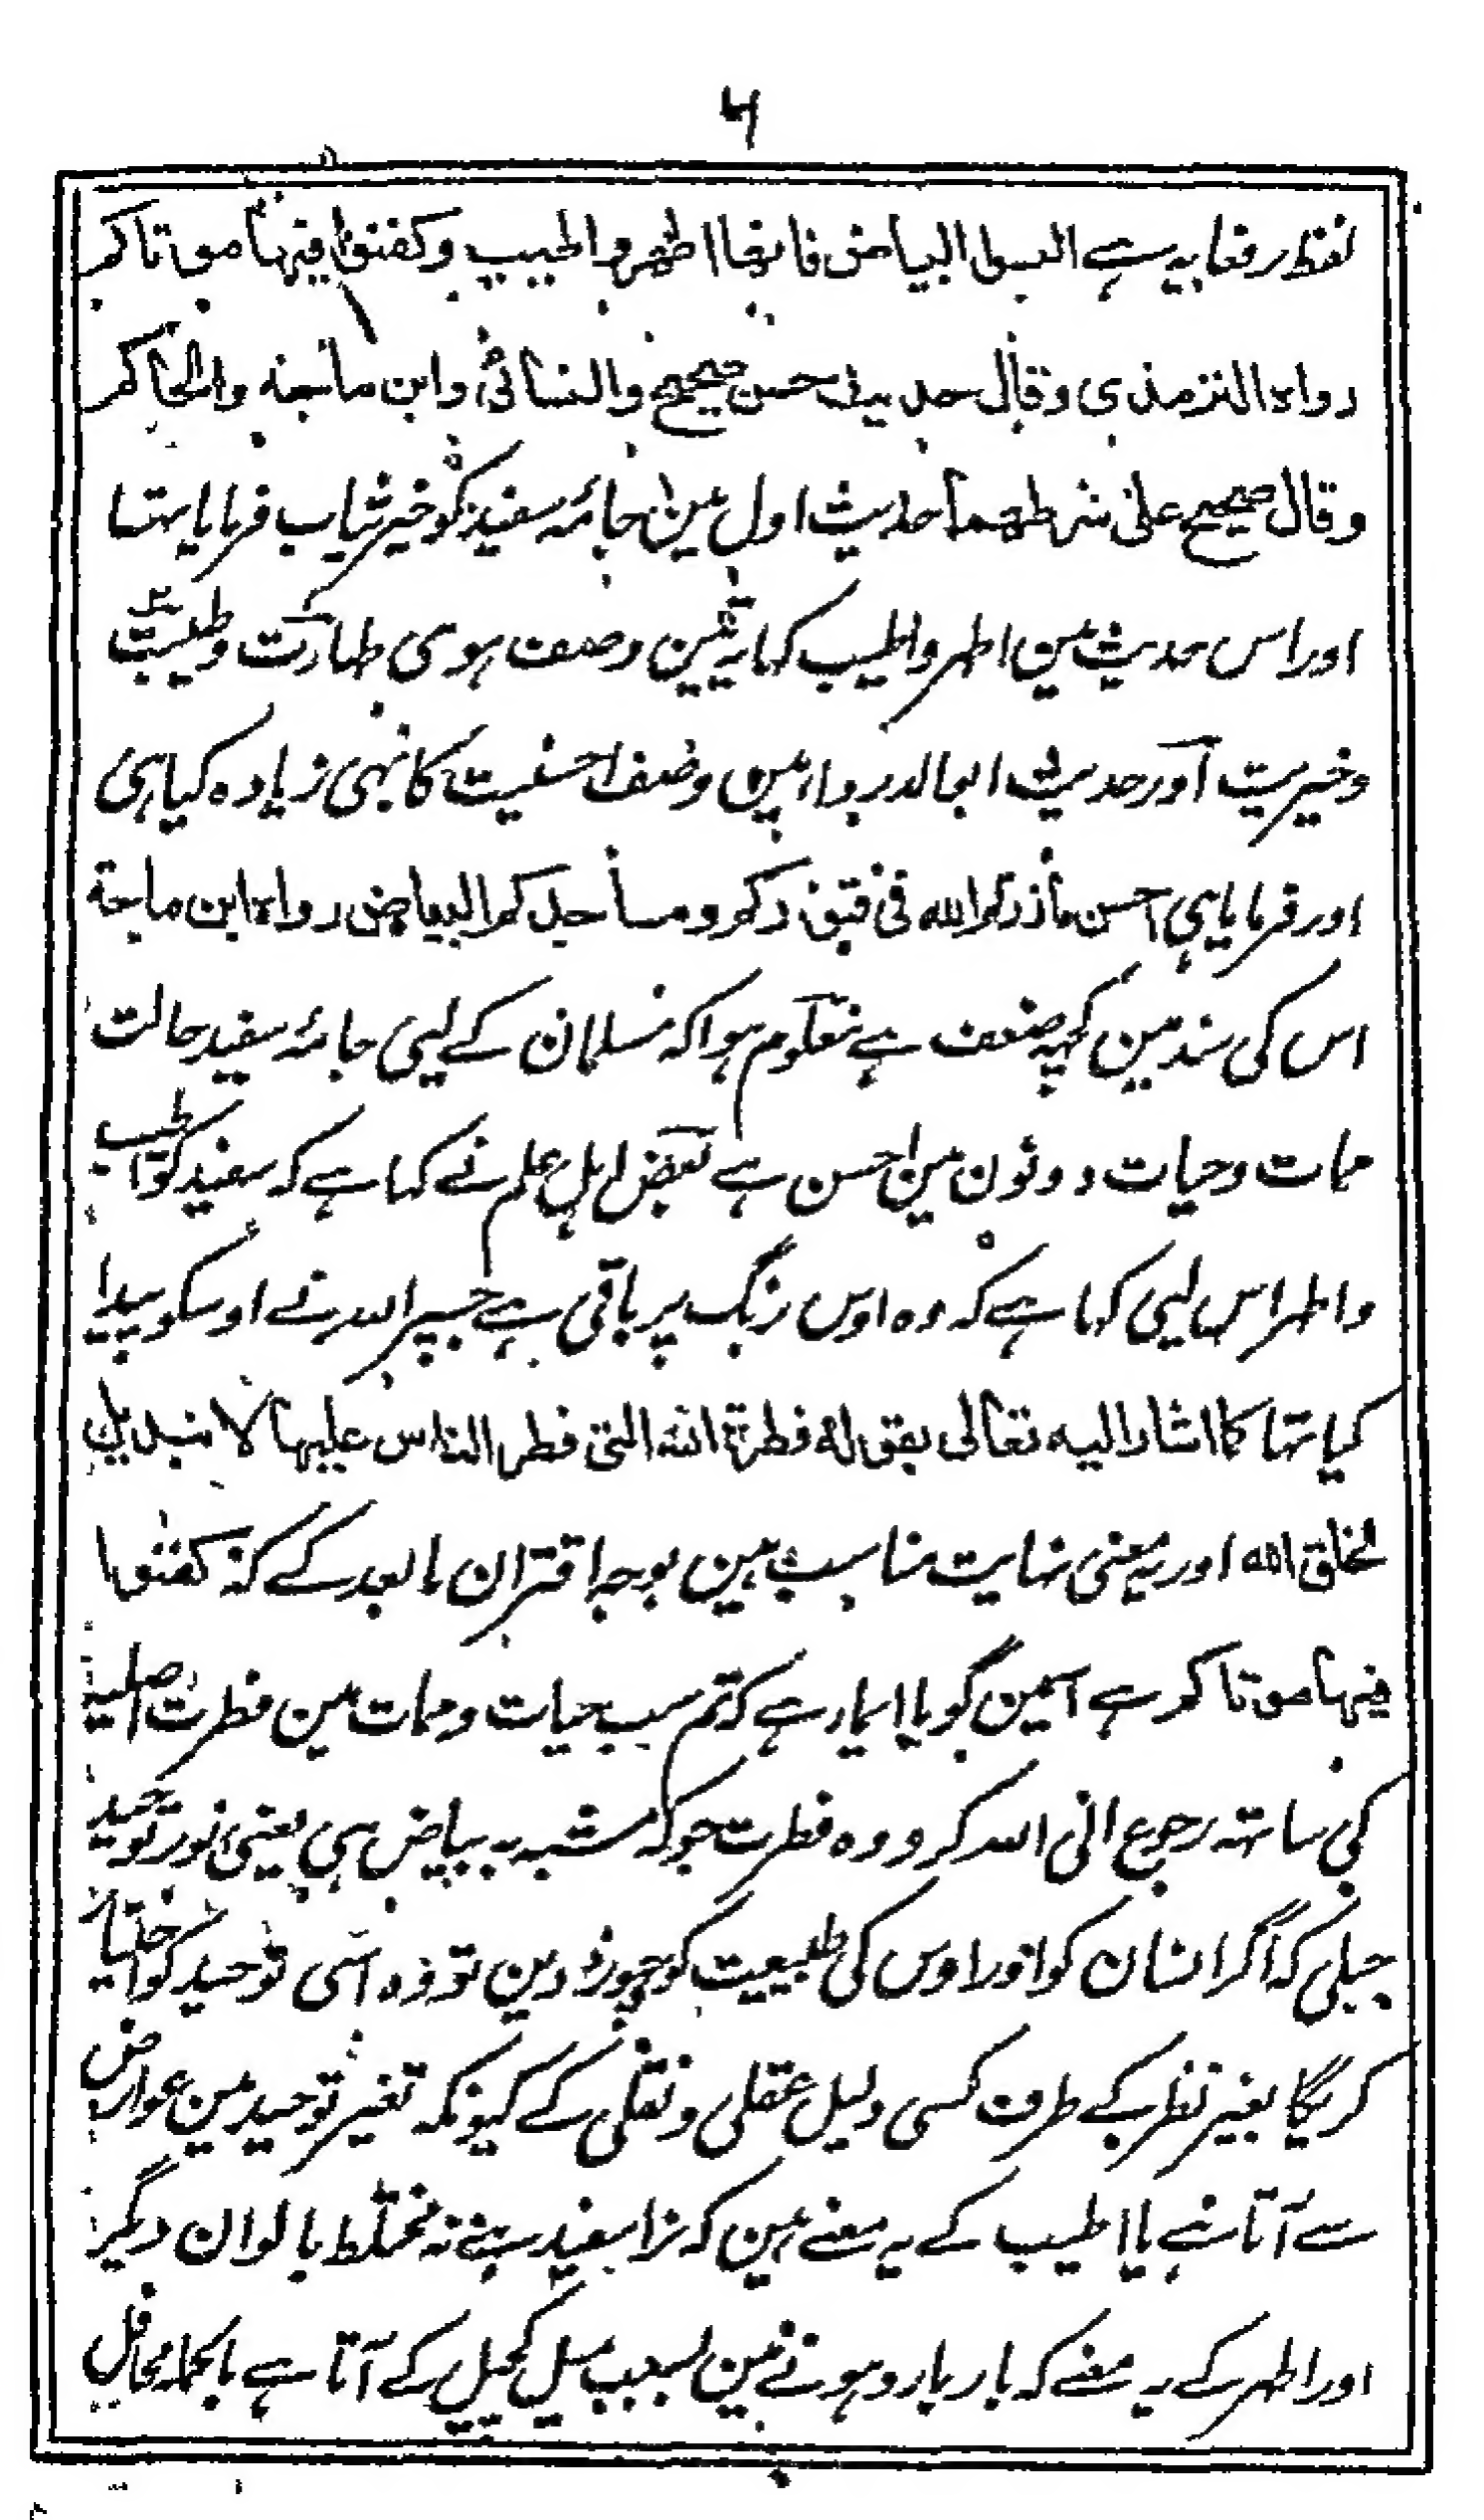 ۶
لفظ رفعا یہ ہے البسوا البیاض فانھا اطھر و اطیب وکفنوا فیہا موتاکم
رواہ الترمذی وقال حدیث حسن صحیح والنسائی وابن ماجہ والحاکم
وقال صحیح علی شرطھما حدیث اول مین جامۂ سفید کو خیر ثیاب فرمایا تہا
اور اس حدیث مین اطہر واطیب کہا یہ تین وصف ہوی طہارت وطیبت
وخیریت اور حدیث ابی الدرداء مین وصف احسنیت کا بہی زیادہ کیا ہی
اور فرمایا ہی احسن ماذرتم اللہ فی قبورکم ومساجدکم البیاض رواہ ابن ماجۃ
اس کی سند مین کچہ ضعف ہے معلوم ہوا کہ مسلمان کے لیی جامۂ سفید حالت
ممات وحیات دونون مین احسن ہے بعض اہل علم نے کہا ہے کہ سفید کو اطیب
واطہر اس لیی کہا ہے کہ وہ اوس رنگ پر باقی ہے جسپر اللہ نے اوسکو پیدا
کیا تہا کما اشار الیہ تعالی بقولہ فطرۃ اللہ التی فطر الناس علیہا لا تبدیل
لخلق اللہ اور یہ معنی نہایت مناسب ہین بوجہ اقتران مابعد کے کہ کفنوا
فیہا موتاکم ہے اسمین گویا ایماء ہے کہ تم سب حیات وممات مین فطرت اصلیہ
کی ساتہ رجوع الی اللہ کرو وہ فطرت جو کہ مشبہ بہ بیاض ہی یعنی نور توحید
جبلی کہ اگر انسان کو اور اوس کی طبیعت کو چہوڑ دین تو وہ اسی توحید کو اختیار
کریگا بغیر نظر کے طرف کسی دلیل عقلی ونقلی کے کیونکہ تغیر توحید مین عوارض
سے آتا ہے یا اطیب کے یہ معنے ہین کہ نرا سفید ہے نہ مختلط بالوان دیگر
اور اطہر کے یہ معنے کہ بار بار دہونے مین بسبب میل کچیل کے آتا ہے بالجملہ محافل